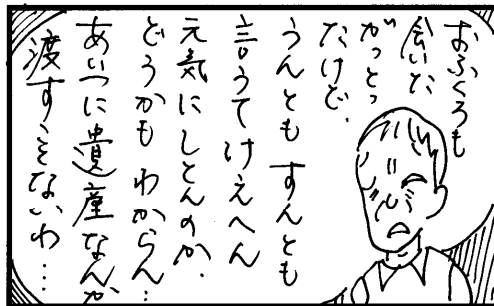 おふくろも
会いた
がっとっ
たけど、
うんともすんとも
言うてけえへん
元気にしとんのか、
どうかもわからん…
あいつに遺産なんか
渡すことないわ…